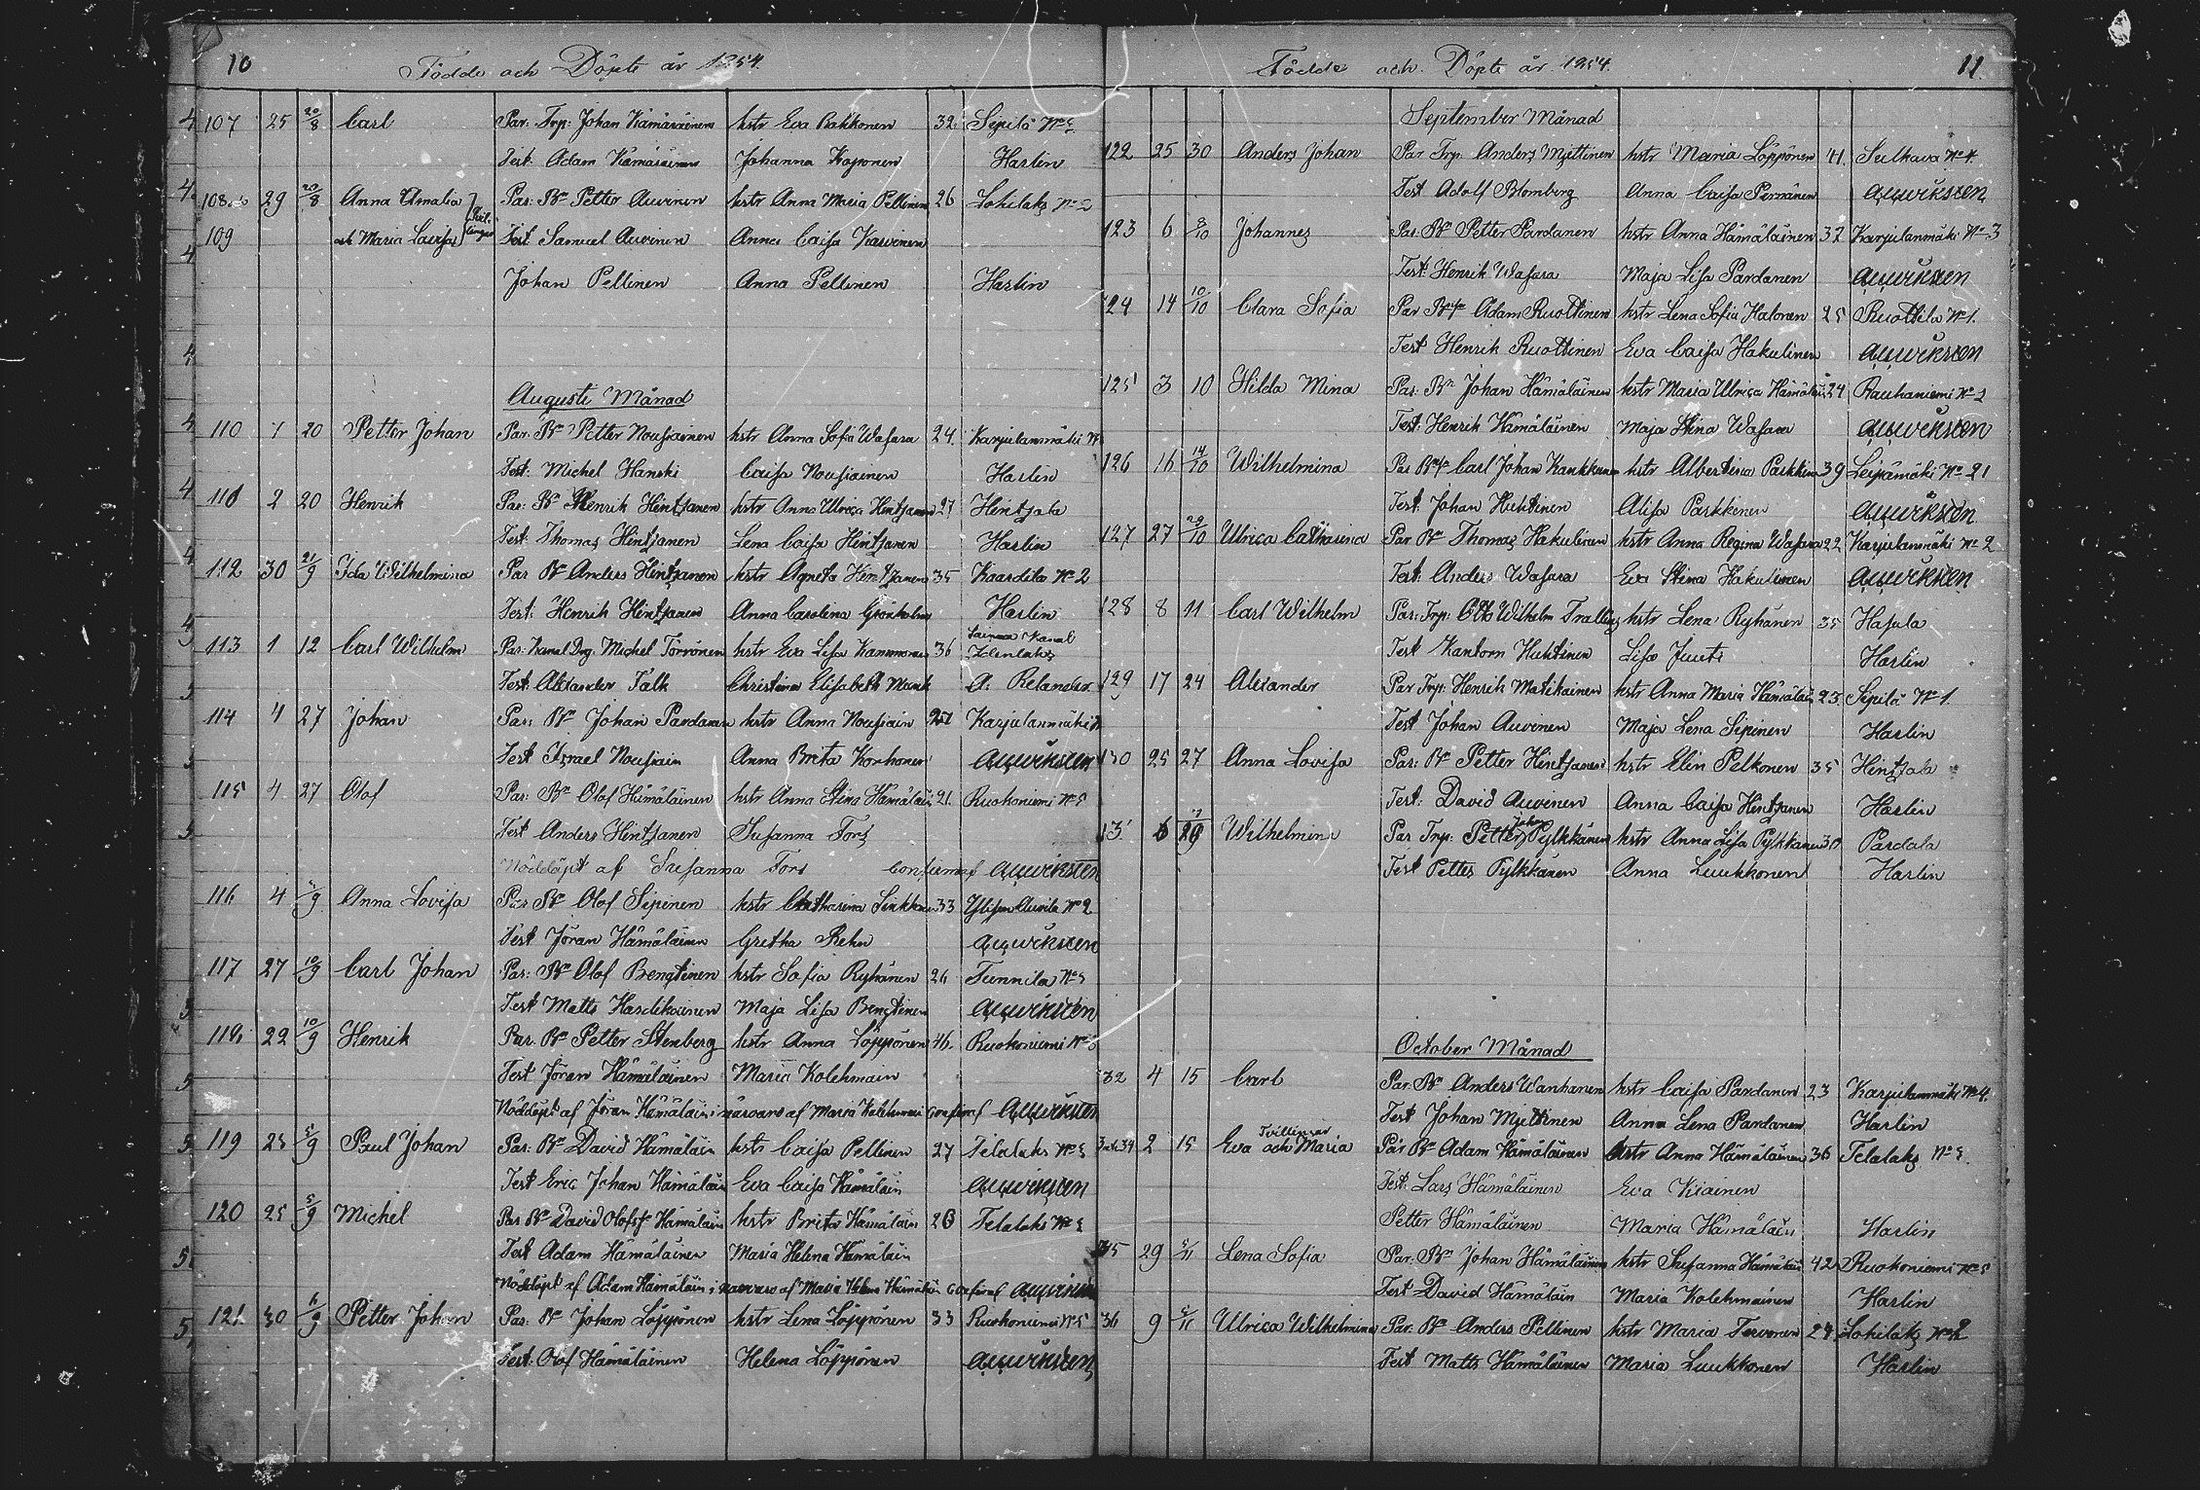 10 Födde och Döpte år 1854.
107 25 20/8 Carl Par: Trp: Johan Kämäräinen hstr Eva Pakkonen 32 Sipilä No
Test. Adam Kämäräinen Johanna Kaponen Harlin
108. 29 20/8 Anna Amalia Par: Bn Petter Auvinen hstr Anna Maria Pellinen 26 Lohilaks No 2
109 och Maria Lovisa Test Samuel Auvinen Anna Caisa Kauvinen
Johan Pellinen Anna Pellinen Harlin
Augusti Månad
110 1 20 Petter Johan Par: Bn Petter Nousiainen hstr Anna Sofia Wasara 24. Karjulanmäki
Test: Michel Hanski Caisa Nousiainen Harlin
111 2 20 Henrik Par: Bn Henrik Hintsanen hstr Anna Ulrica Hintsanen 27 Hintsala
Test: Thomas Hintsanen Lena Caisa Hintsanen Harlin
112 30 21/9 Ida Wilhelmina Par Bn Anders Hintsanen hstr Agneta Hintsanen 35 Kaardila No 2
Test: Henrik Hintsanen Anna Carolina Grönholm Harlin
113 1 12 Carl Wilhelm Par: Kanal Drg. Michel Törrönen hstr Eva Lisa Kammonen 36 Saima Kanal
Test. Alexander Falk Christina Elisabeth Munk A: Relander
114 4 27 Johan Par: Bn Johan Pardanen hstr Anna Nousiain Karjulanmäki
Test Israel Nousiain Anna Brita Korhonen
115 4 27 Olof Par: Bn Olof Hämäläinen hstr Anna Stina Hämäläin 21. Ruokoniemi No 5
Test Anders Hintsanen Susanna Fors
Nöddöpt af Susanna Fors confirmf
116 4 /9 Anna Lovisa Par Bn Olof Sipinen hstr Catharina Sinkkonen 33 No 2
Test Jöran Hämäläinen Gretha Rehn
117 27 10/9 Carl Johan Par: Bn Olof Bengtinen hstr Sofia Ryhänen 26 Tunnila No
Test Matts Hardikainen Maja Lisa Bengtinen
118. 22 10/9 Henrik Par. Bn Petter Stenberg hstr Anna Löppönen 46. Ruokoniemi No
Test Jöran Hämäläinen Maria Kolehmain
Nöddöpt af Jöran Hämäläin i närvaro af Maria Kolehmain confirmf
119 23 5/9 Paul Johan Par: Bn David Hämäläin hstr Caisa Pellinen 27 Telalaks No
Test Eric Johan Hämäläin Eva Caisa Hämäläin
120 25 5/9 Michel Par Bn David Olofsf Hämäläin hstr Brita Hämäläin 26 Telalaks No
Test Adam Hämäläinen Maria Helena Hämäläin
Nöddöpt af Adam Hämäläin i närvaro af Maria Helena Hämäläin confirmf
121. 30 /9 Petter Johan Par: Bn Johan Löppönen hstr Lena Löppönen 33 Ruokoniemi No 5
Test. Olof Hämäläinen Helena Löppönen
Födde och Döpte år 1854. 11.
September Månad
122 25 30 Anders Johan Par Trp: Anders Myttinen hstr Maria Löppönen 41. Sulkava No 4
Test Adolf Blomberg Anna Caisa Pernänen
123 6 8/10 Johannes Par: Bn Petter Pardanen hstr Anna Hämäläinen 37 Karjulanmäki No 3
Test: Henrik Wasara Maja Lisa Pardanen
124 14 10/10 Clara Sofia Par Adam Ruottinen hstr Lena Sofia Halonen 25 Ruottila No 1.
Test Henrik Ruottinen Eva Caisa Hakulinen
125 3 10 Hilda Mina Par: Bn Johan Hämäläinen hstr Maria Ulrica Hämäläin 24 Rauhaniemi No 2
Test: Henrik Hämäläinen Maja Stina Wasara
126 16 14/10 Wilhelmina Par Carl Johan Kankkunen hstr Albertina Parkkinen 39 Leipämäki No 21
Test Johan Huhtinen Alisa Parkkinen
127 27 29/10 Ulrica Catharina Par Bn Thomas Hakulinen hstr Anna Regina Wasara 22 Karjulanmäki No 2
Test: Anders Wasara Eva Stina Hakulinen
128 8 11 Carl Wilhelm Par: Trp: Otto Wilhelm Tralling hstr Lena Ryhänen 35 Hasula
Test Kantorn Huhtinen Lisa Juuti Harlin
129 17 24 Alexander Par Trp: Henrik Matikainen hstr Anna Maria Hämäläin 23 Sipilä No 1.
Test Johan Auvinen Maja Lena Sipinen Harlin
130 25 27 Anna Lovisa Par: Bn Petter Hintsanen hstr Elin Pelkonen 35 Hintsala
Test: David Auvinen Anna Caisa Hintsanen Harlin
13 6 29 Wilhelmina Par Trp: Petter Johan Pylkkänen hstr Anna Lisa Pylkkänen 30 Pardala
Test Petter Pylkkänen Anna Luukkonen Harlin
October Månad
132 4 15 Carl Par: Bn Anders Wanhanen hstr Caisa Pardanen 23 Karjulanmäki No 4.
Test Johan Myttinen Anna Lena Pardanen Harlin
2 15 Eva och Maria Tvillingar Par Bn Adam Hämäläinen hstr Anna Hämäläinen 36 Telalaks No
Test: Lars Hämäläinen Eva Kiiainen
Petter Hämäläinen Maria Hämäläin Harlin
135 29 5/11 Lena Sofia Par: Bn Johan Hämäläinen hstr Susanna Hämäläin 42 Ruokoniemi No 5
Test David Hämäläin Maria Kolehmainen Harlin
36 9 5/11 Ulrica Wilhelmina Par: Bn Anders Pellinen hstr Maria Tervonen 24 Lohilaks No 2
Test Matts Hämäläinen Maria Luukkonen Harlin